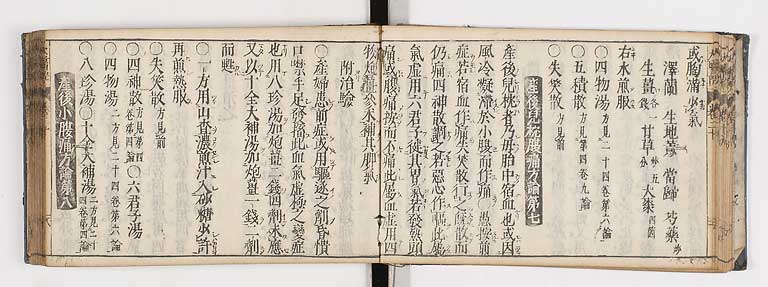 或胸滿少氣
澤蘭 生地黃 當歸 芍藥
生薑 甘草 大棗
右水煎服
○四物湯 方見二十四卷第六論
○五積散 方見第四卷九論
○失笑散 方見前
産後兒枕腹痛方論第七
産後兒枕者乃母胎中宿血也或因
風冷凝滯於小腹而作痛 愚按前
症若宿血作痛失笑散行之既散而
仍痛四神散調之若惡心作嘔此屬
氣虛用六君子健其胃氣若發熱頭
痛或腹痛按而不痛此屬血虛用四
物炮薑參朮補其脾氣
附治驗
○産婦患前症或用驅逐之劑昏憒
口噤手足發搐此血氣虛極之變症
也用八珍湯加炮薑二錢四劑未應
又以十全大補湯加炮薑一錢二劑
而甦
○一方用山査濃煎汁入砂糖少許
再煎熱服
○失笑散 方見前
○四神散 方見第四 ○六君子湯
○四物湯 二方見二十四卷第六論
○八珍湯○十全大補湯 二方見二十四卷第四論
産後小腹痛方論第八